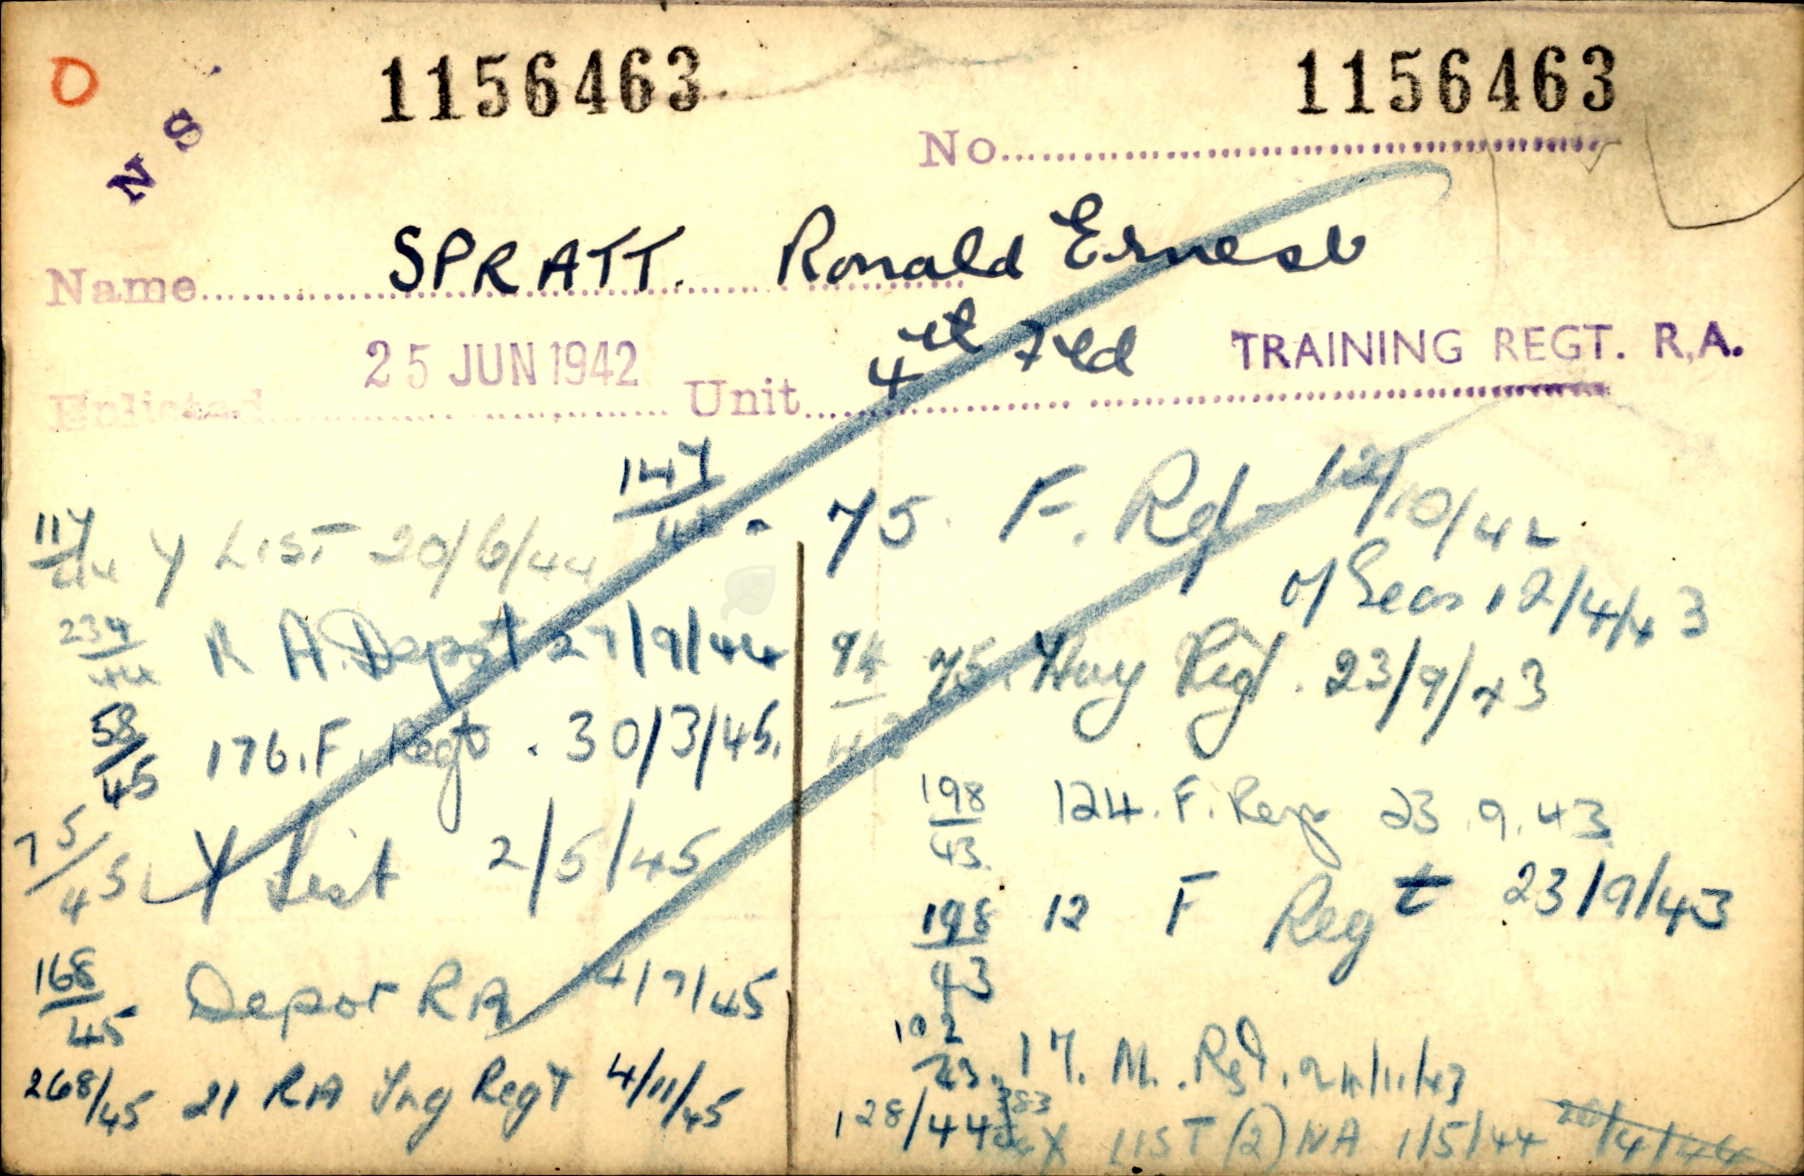 O
N S
1156463 1156463
No
Name SPRATT. Ronald Ernest
Enlisted 25 JUN 1942 Unit 4th Fld TRAINING REGT. R.A.
147/42 - 75 F. Rgt 12/10/42
o/Seas 12/4/43
94/43 75. Hvy Rgt. 23/9/43
198/43. 124. F. Reg 23.9.43
198/43 12 F Regt 23/9/43
17. M. Rgt. 24/11/43
128/44 X LIST (2) NA 1/5/44 20/4/44
117/44 Y LIST 20/6/44
234/44 R A. Depot 27/9/44
58/45 176. F. Regt. 30/3/45.
75/45 Y List 2/5/45
168/45 Depot RA 4/7/45
268/45 21 RA Trg Regt 4/11/45